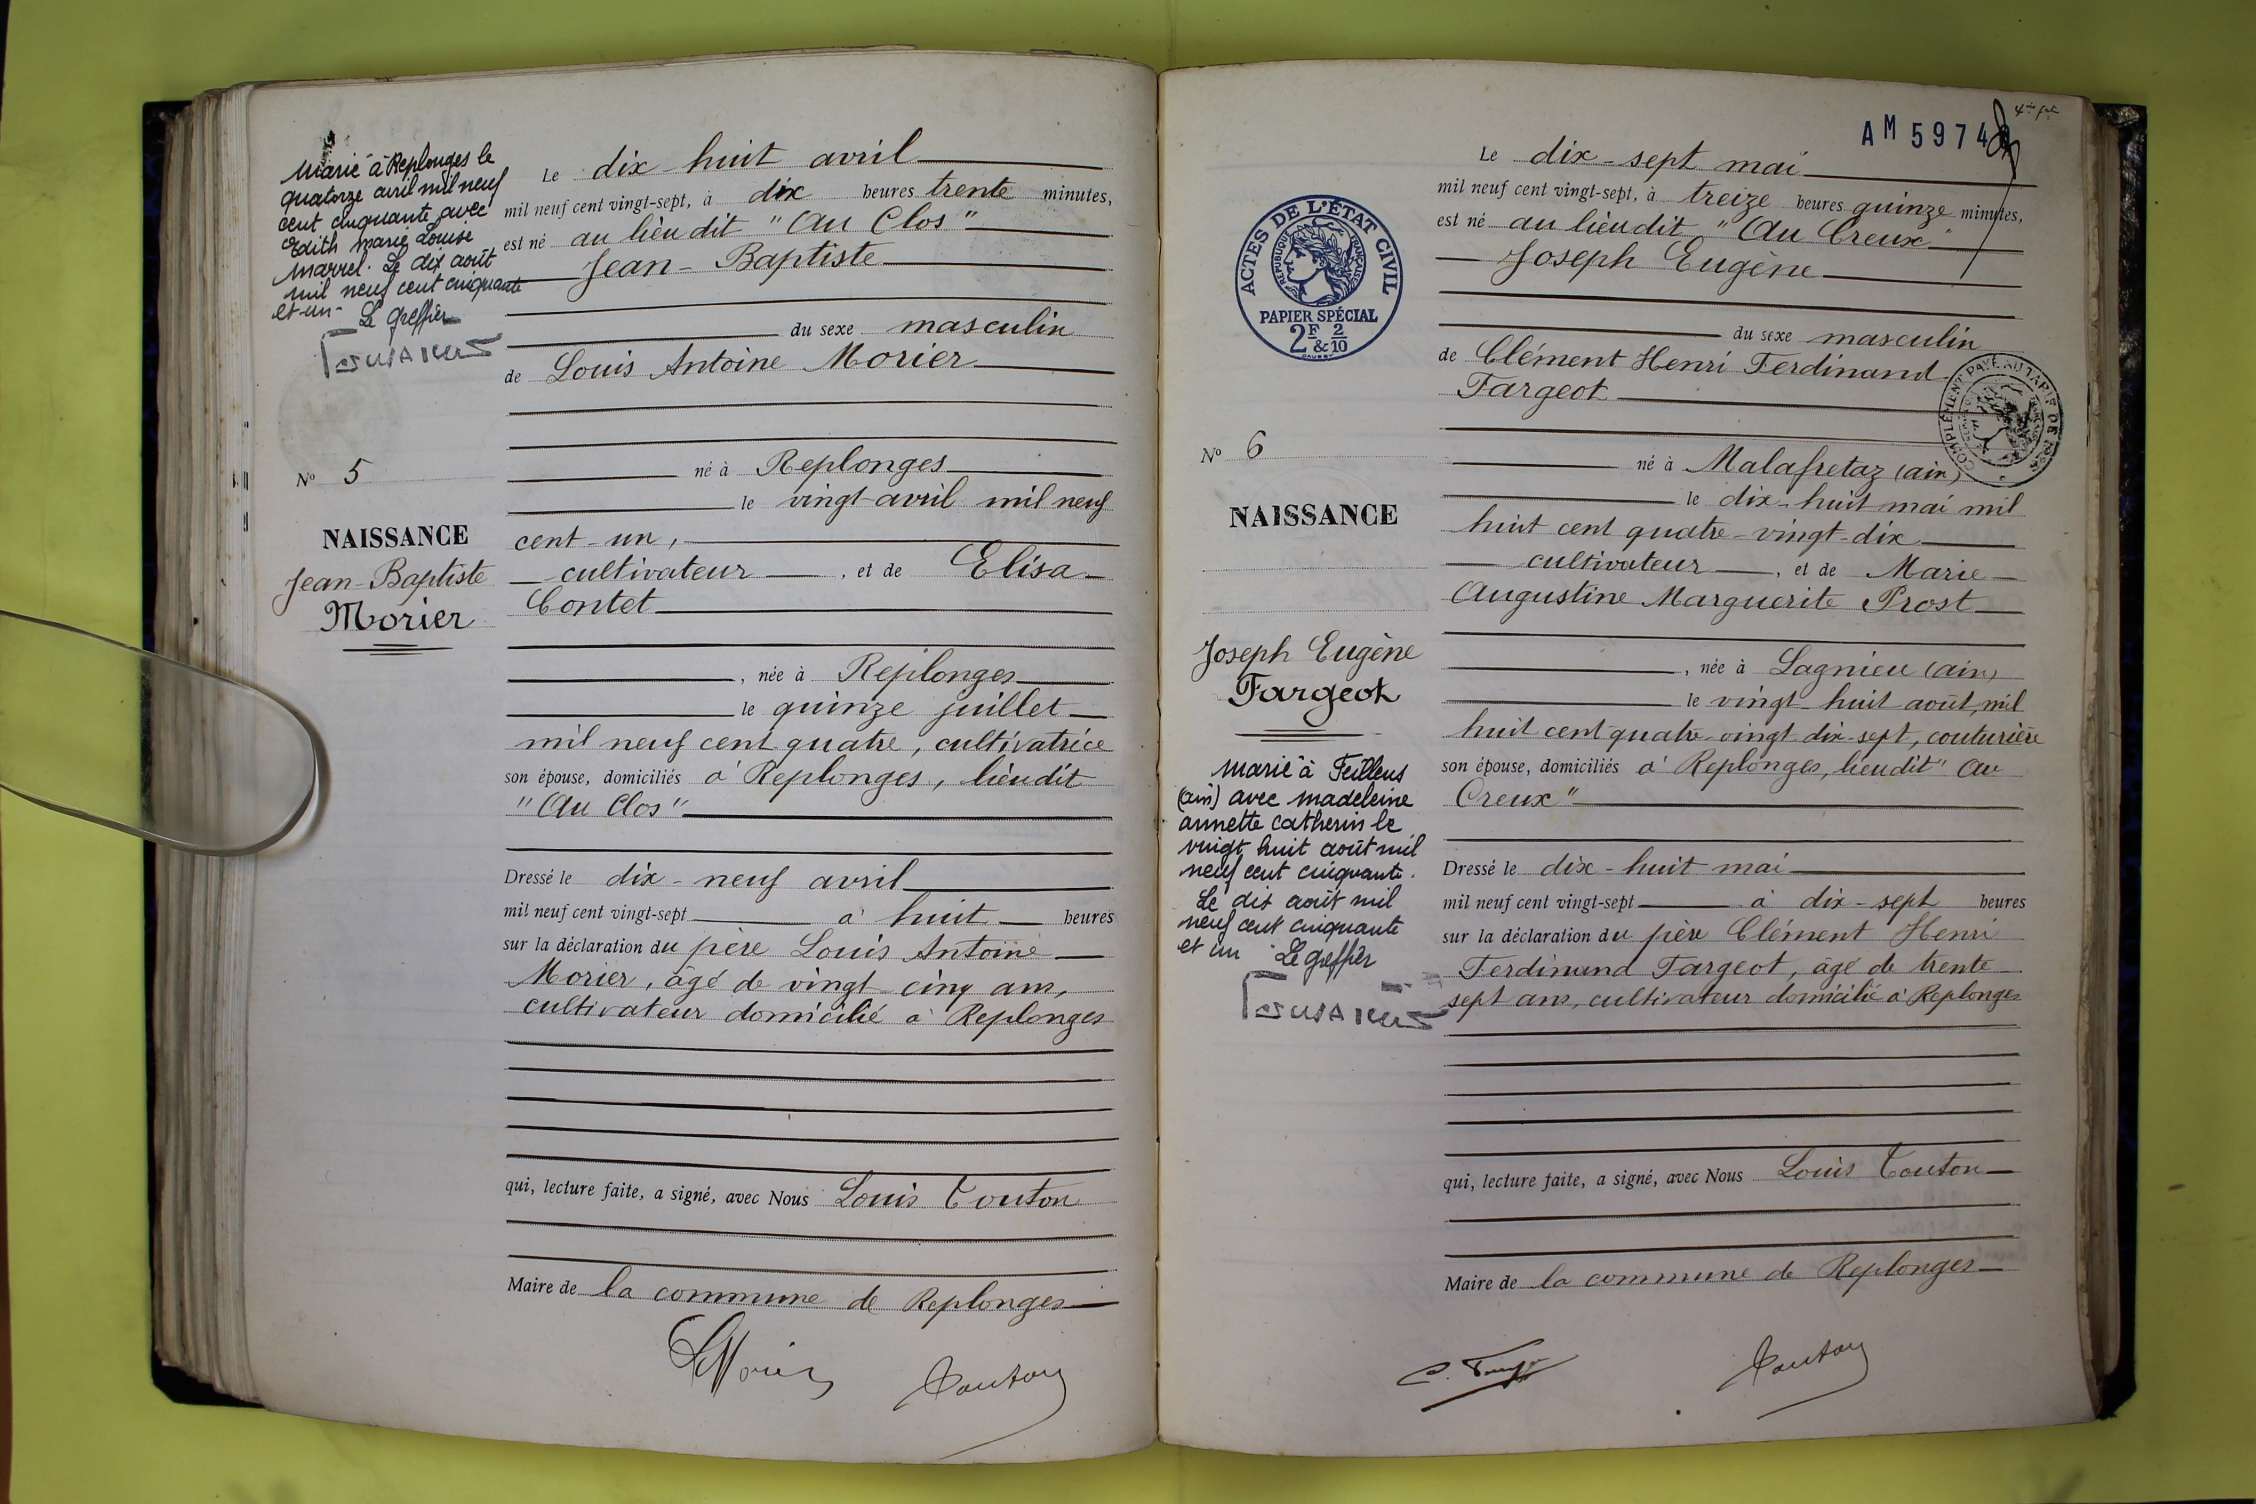 Marié à Replonges le
quatorze avril mil neuf
cent cinquante avec
Edith Marie Louise
Marrel. Le dix août
mil neuf cent cinquante
et un - Le greffier
N° 5
NAISSANCE
Jean-Baptiste
Morier
Le dix huit avril
mil neuf cent vingt-sept, à dix heures trente minutes,
est né au lieu dit "Au Clos"
Jean-Baptiste
du sexe masculin
de Louis Antoine Morier
né à Replonges
le vingt avril mil neuf
cent-un,
cultivateur, et de Elisa
Contet
, née à Replonges
le quinze juillet
mil neuf cent quatre, cultivatrice
son épouse, domiciliés à Replonges, lieudit
"Au Clos"
Dressé le dix-neuf avril
mil neuf cent vingt-sept à huit heures
sur la déclaration du père Louis Antoine
Morier, âgé de vingt-cinq ans,
cultivateur domicilié à Replonges
qui, lecture faite, a signé, avec Nous Louis Touton
Maire de la commune de Replonges
LMorier
Touton
AM 5974
ACTES DE L'ÉTAT CIVIL
RÉPUBLIQUE FRANÇAISE
PAPIER SPÉCIAL
2F & 2/10
N° 6
NAISSANCE
Joseph Eugène
Fargeot
Marié à Feillens
(ain) avec Madeleine
annette catherin le
vingt huit août mil
neuf cent cinquante.
Le dix août mil
neuf cent cinquante
et un Le greffier
Le dix-sept mai
mil neuf cent vingt-sept, à treize heures quinze minutes,
est né au lieudit "Au Creux"
Joseph Eugène
du sexe masculin
de Clément Henri Ferdinand
Fargeot
COMPLÉMENT PAYÉ AU TARIF DE
né à Malafretaz (ain)
le dix-huit mai mil
huit cent quatre-vingt-dix
cultivateur, et de Marie
Augustine Marguerite Prost
, née à Lagnieu (ain)
le vingt-huit août, mil
huit cent quatre-vingt-dix-sept, couturière
son épouse, domiciliés à Replonges, lieudit "Au
Creux"
Dressé le dix-huit mai
mil neuf cent vingt-sept à dix-sept heures
sur la déclaration du père Clément Henri
Ferdinand Fargeot, âgé de trente
sept ans, cultivateur domicilié à Replonges
qui, lecture faite, a signé, avec Nous Louis Touton
Maire de la commune de Replonges
Touton